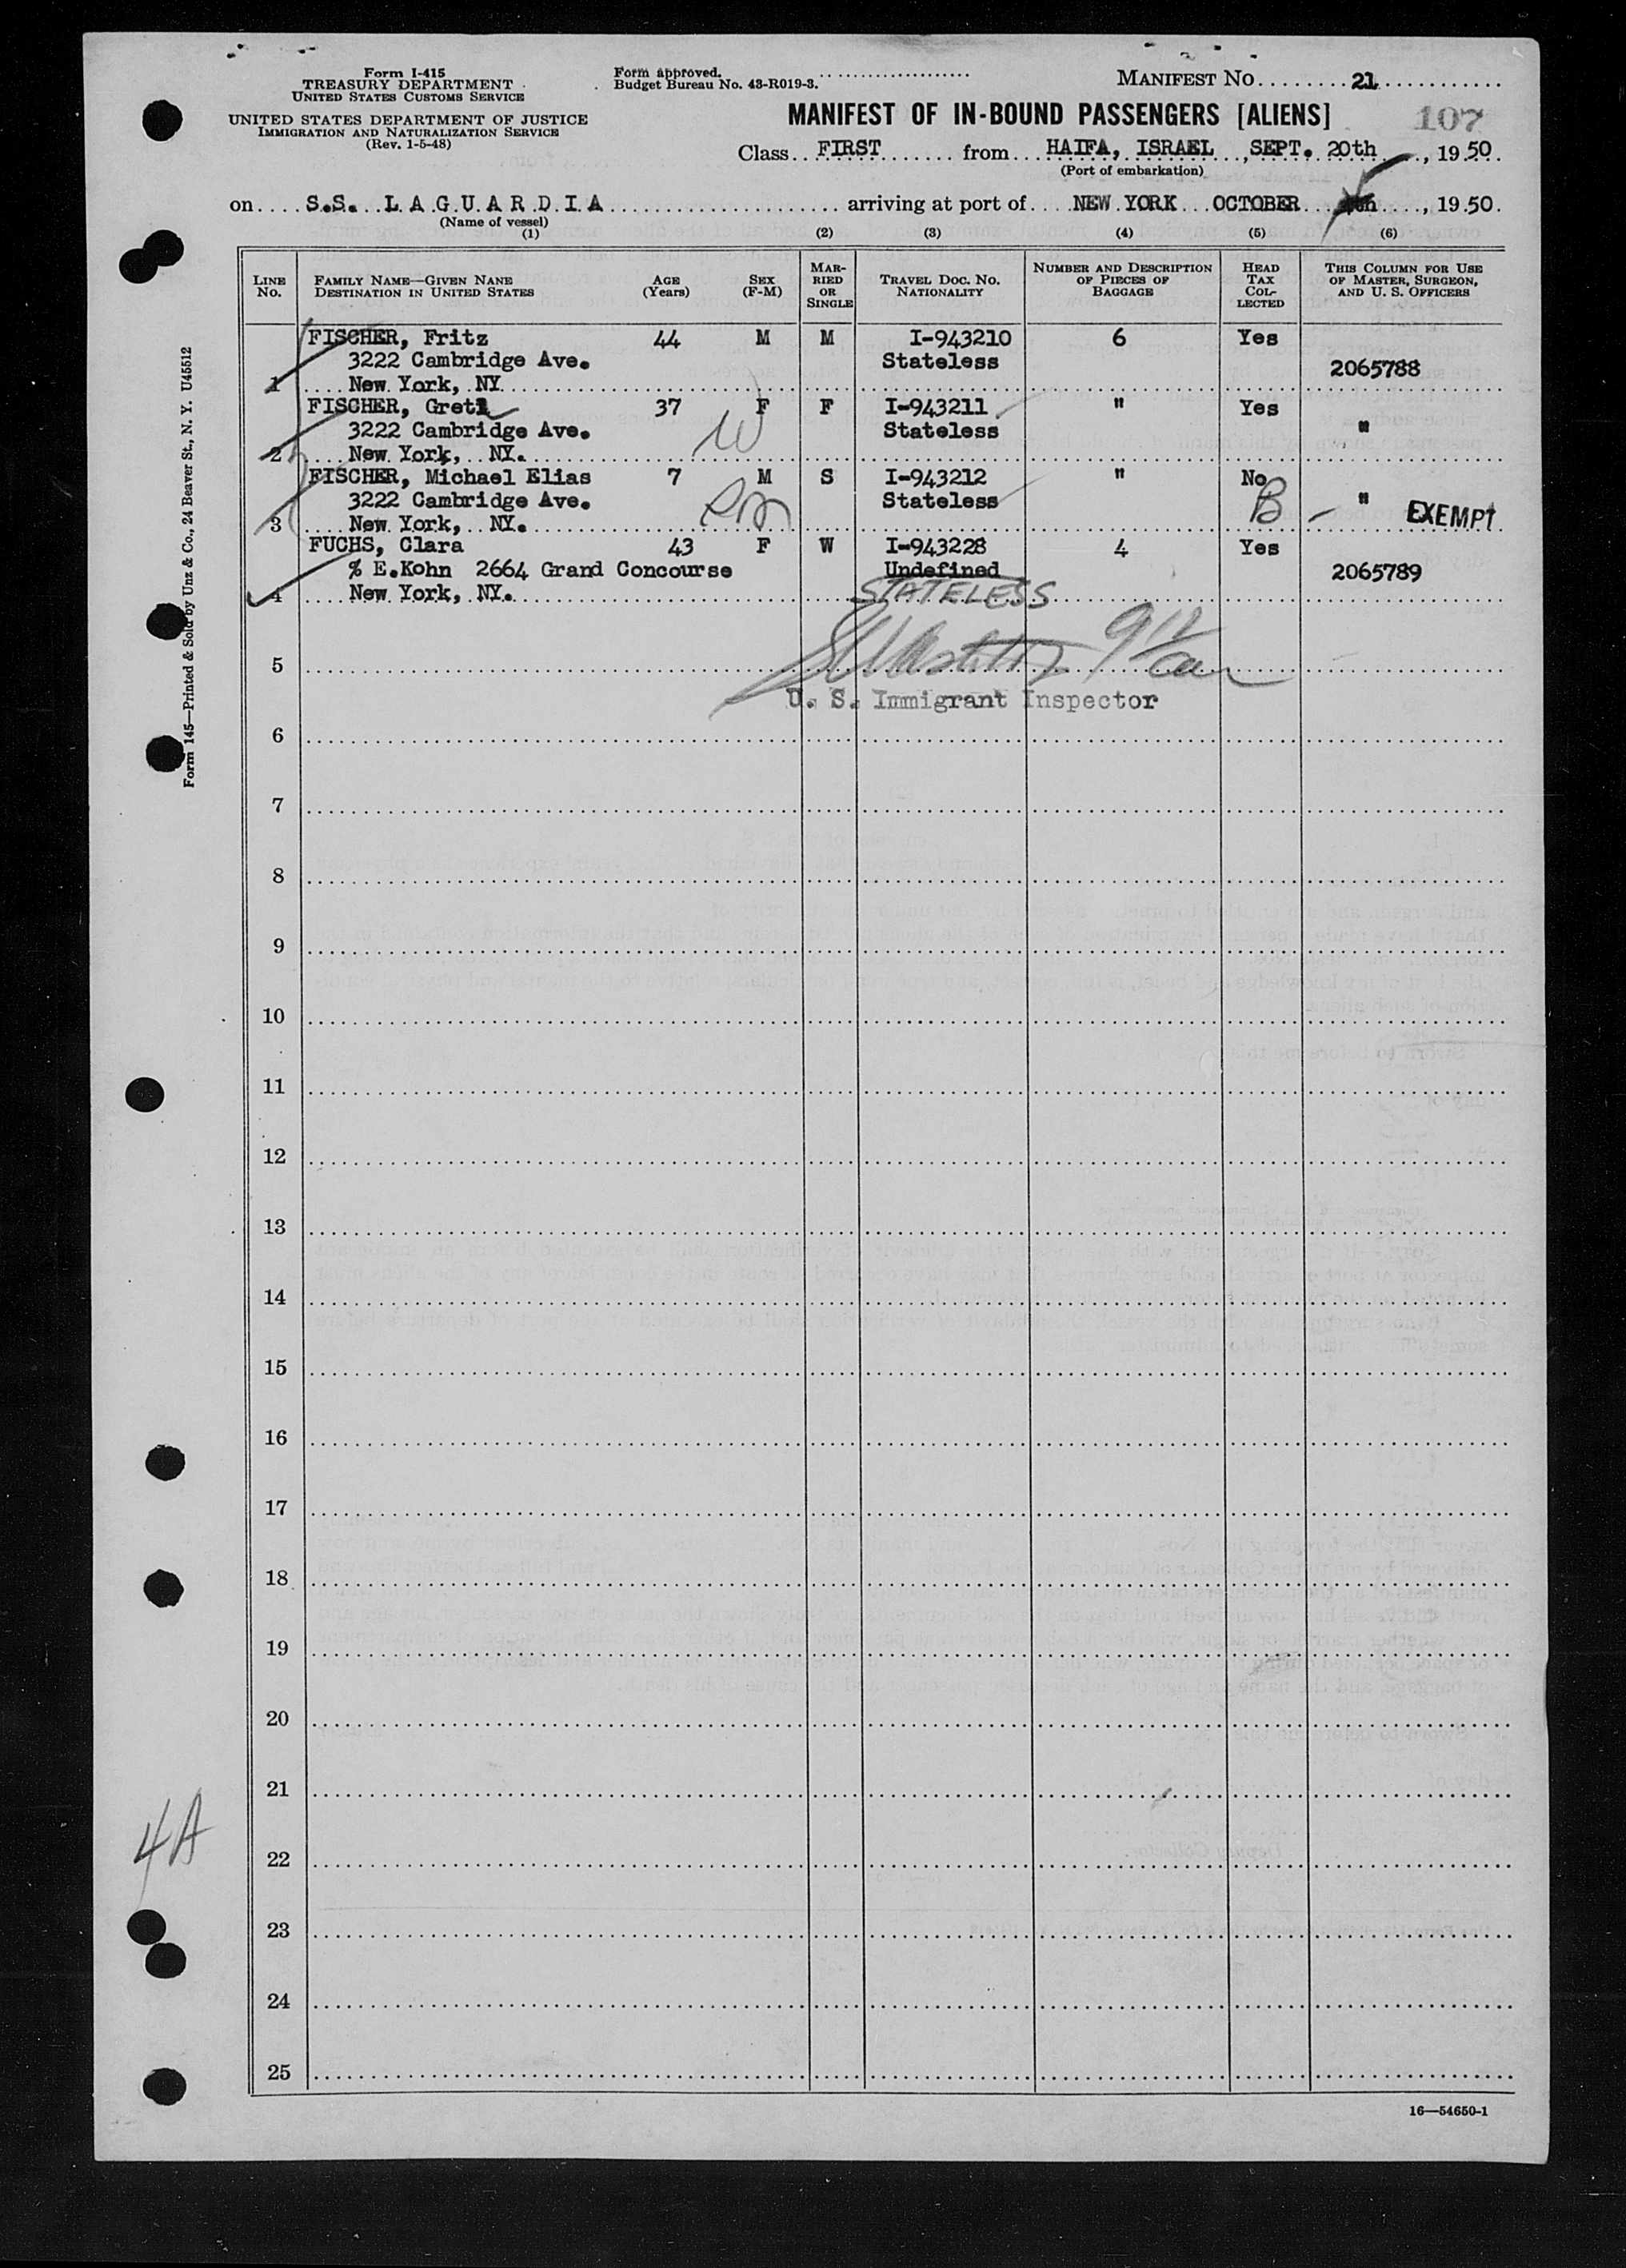 Form I-415
TREASURY DEPARTMENT
UNITED STATES CUSTOMS SERVICE
UNITED STATES DEPARTMENT OF JUSTICE
IMMIGRATION AND NATURALIZATION SERVICE
(Rev. 1-5-48)
Form approved.
Budget Bureau No. 43-R019-3.
MANIFEST NO. 21
MANIFEST OF IN-BOUND PASSENGERS [ALIENS] 107
Class FIRST from HAIFA, ISRAEL, SEPT. 20th, 1950.
(Port of embarkation)
on S.S. LAGUARDIA arriving at port of NEW YORK OCTOBER, 1950.
(Name of vessel)
(1) (2) (3) (4) (5) (6)
LINE NO. FAMILY NAME—GIVEN NANE DESTINATION IN UNITED STATES AGE (Years) SEX (F-M) MARRIED OR SINGLE TRAVEL DOC. NO. NATIONALITY NUMBER AND DESCRIPTION OF PIECES OF BAGGAGE HEAD TAX COLLECTED THIS COLUMN FOR USE OF MASTER, SURGEON, AND U. S. OFFICERS
FISCHER, Fritz 44 M M I-943210 6 Yes
3222 Cambridge Ave. Stateless 2065788
1 New York, NY.
FISCHER, Gretl 37 F F I-943211 " Yes
3222 Cambridge Ave. Stateless "
2 New York, NY. W
FISCHER, Michael Elias 7 M S I-943212 " No
3222 Cambridge Ave. Stateless B — " EXEMPT
3 New York, NY.
FUCHS, Clara 43 F W I-943228 4 Yes
% E.Kohn 2664 Grand Concourse Undefined 2065789
4 New York, NY. STATELESS
5
U. S. Immigrant Inspector
6
7
8
9
10
11
12
13
14
15
16
17
18
19
20
21
22
23
24
25
16—54650-1
Form 145—Printed & Sold by Unz & Co., 24 Beaver St., N. Y. U45512
4A